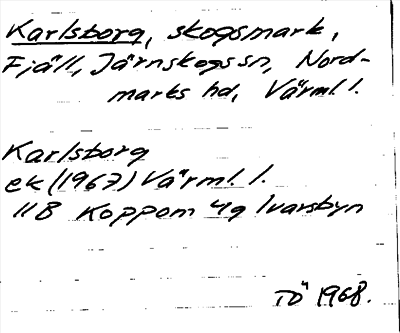 Karlsborg, skogsmark,
Fjäll, Järnskogs sn, Nord-
marks hd, Värml. l.
Karlsborg
ek (1967) Värml. l.
11B Koppom 4g Ivarsbyn
TÖ 1968.